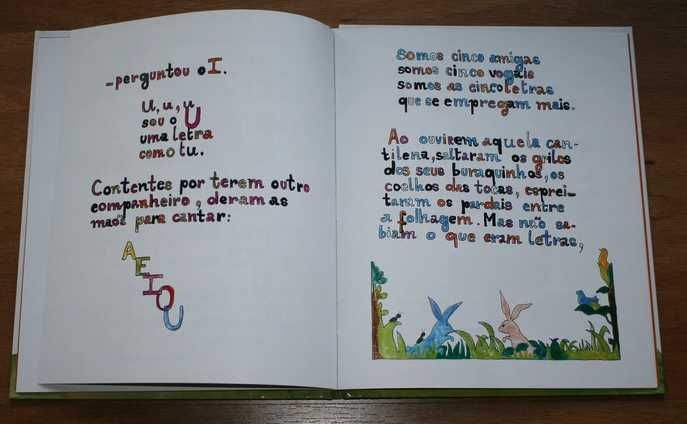 -perguntou o I.
U, u, u
sou o U
uma letra
como tu.
Contentes por terem outro
companheiro, deram as
mãos para cantar:
A
E
I
O
U
Somos cinco amigas
somos cinco vogais
somos as cinco letras
que se empregam mais.
Ao ouvirem aquela can-
tilena, saltaram os grilos
dos seus buraquinhos, os
coelhos das tocas, esprei-
taram os pardais entre
a folhagem. Mas não sa-
biam o que eram letras,